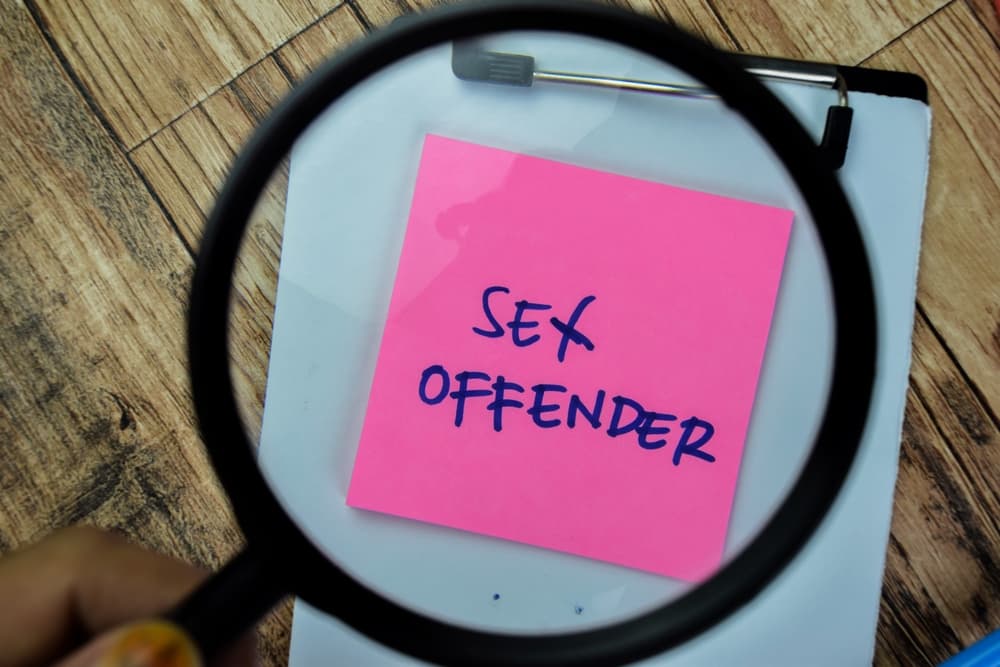 SEX
OFFENDER